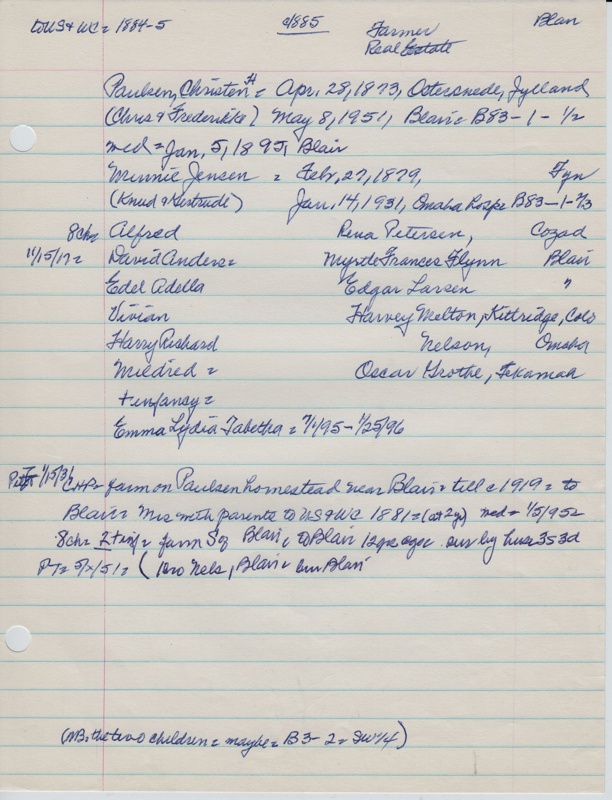 to US & WC = 1884-5 c/1885 Farmer Blair
Real Estate
Paulsen, Christen H = Apr. 28, 1873, Ostersnede, Jylland
(Chris & Frederikke) May 8, 1951, Blair = B83-1-1/2
med = Jan. 5, 1895, Blair
Minnie Jensen = Febr. 27, 1879, Fyn
(Knud & Kertrude) Jan. 14, 1931, Omaha Hospe B83-1-7/3
8ch = Alfred Rena Petersen, Cozad
11/15/17 = David Anders = Myrtle Frances Flynn Blair
Edel Adella Edgar Larsen "
Vivian Harvey Melton, Kittridge, Colo
Harry Richard Nelson, Omaha
Mildred = Oscar Grothe, Tekamah
+ infancy =
Emma Lydia Tabetha = 7/1/95 - 1/25/96
1/15/31 CHP = farm on Paulsen homestead near Blair = till c 1919 = to
Blair = Mrs with parents to US & WC 1881 = (at 2y) med = 1/5/95 =
8ch = 2 + inf = farm S of Blair = to Blair 12 yrs ago = sur by hus = 3s 3d
PT = 5/x/51 = ( bro Nels, Blair = bur Blair
(NB: the two children = maybe = B3-2 = SW 1/4)